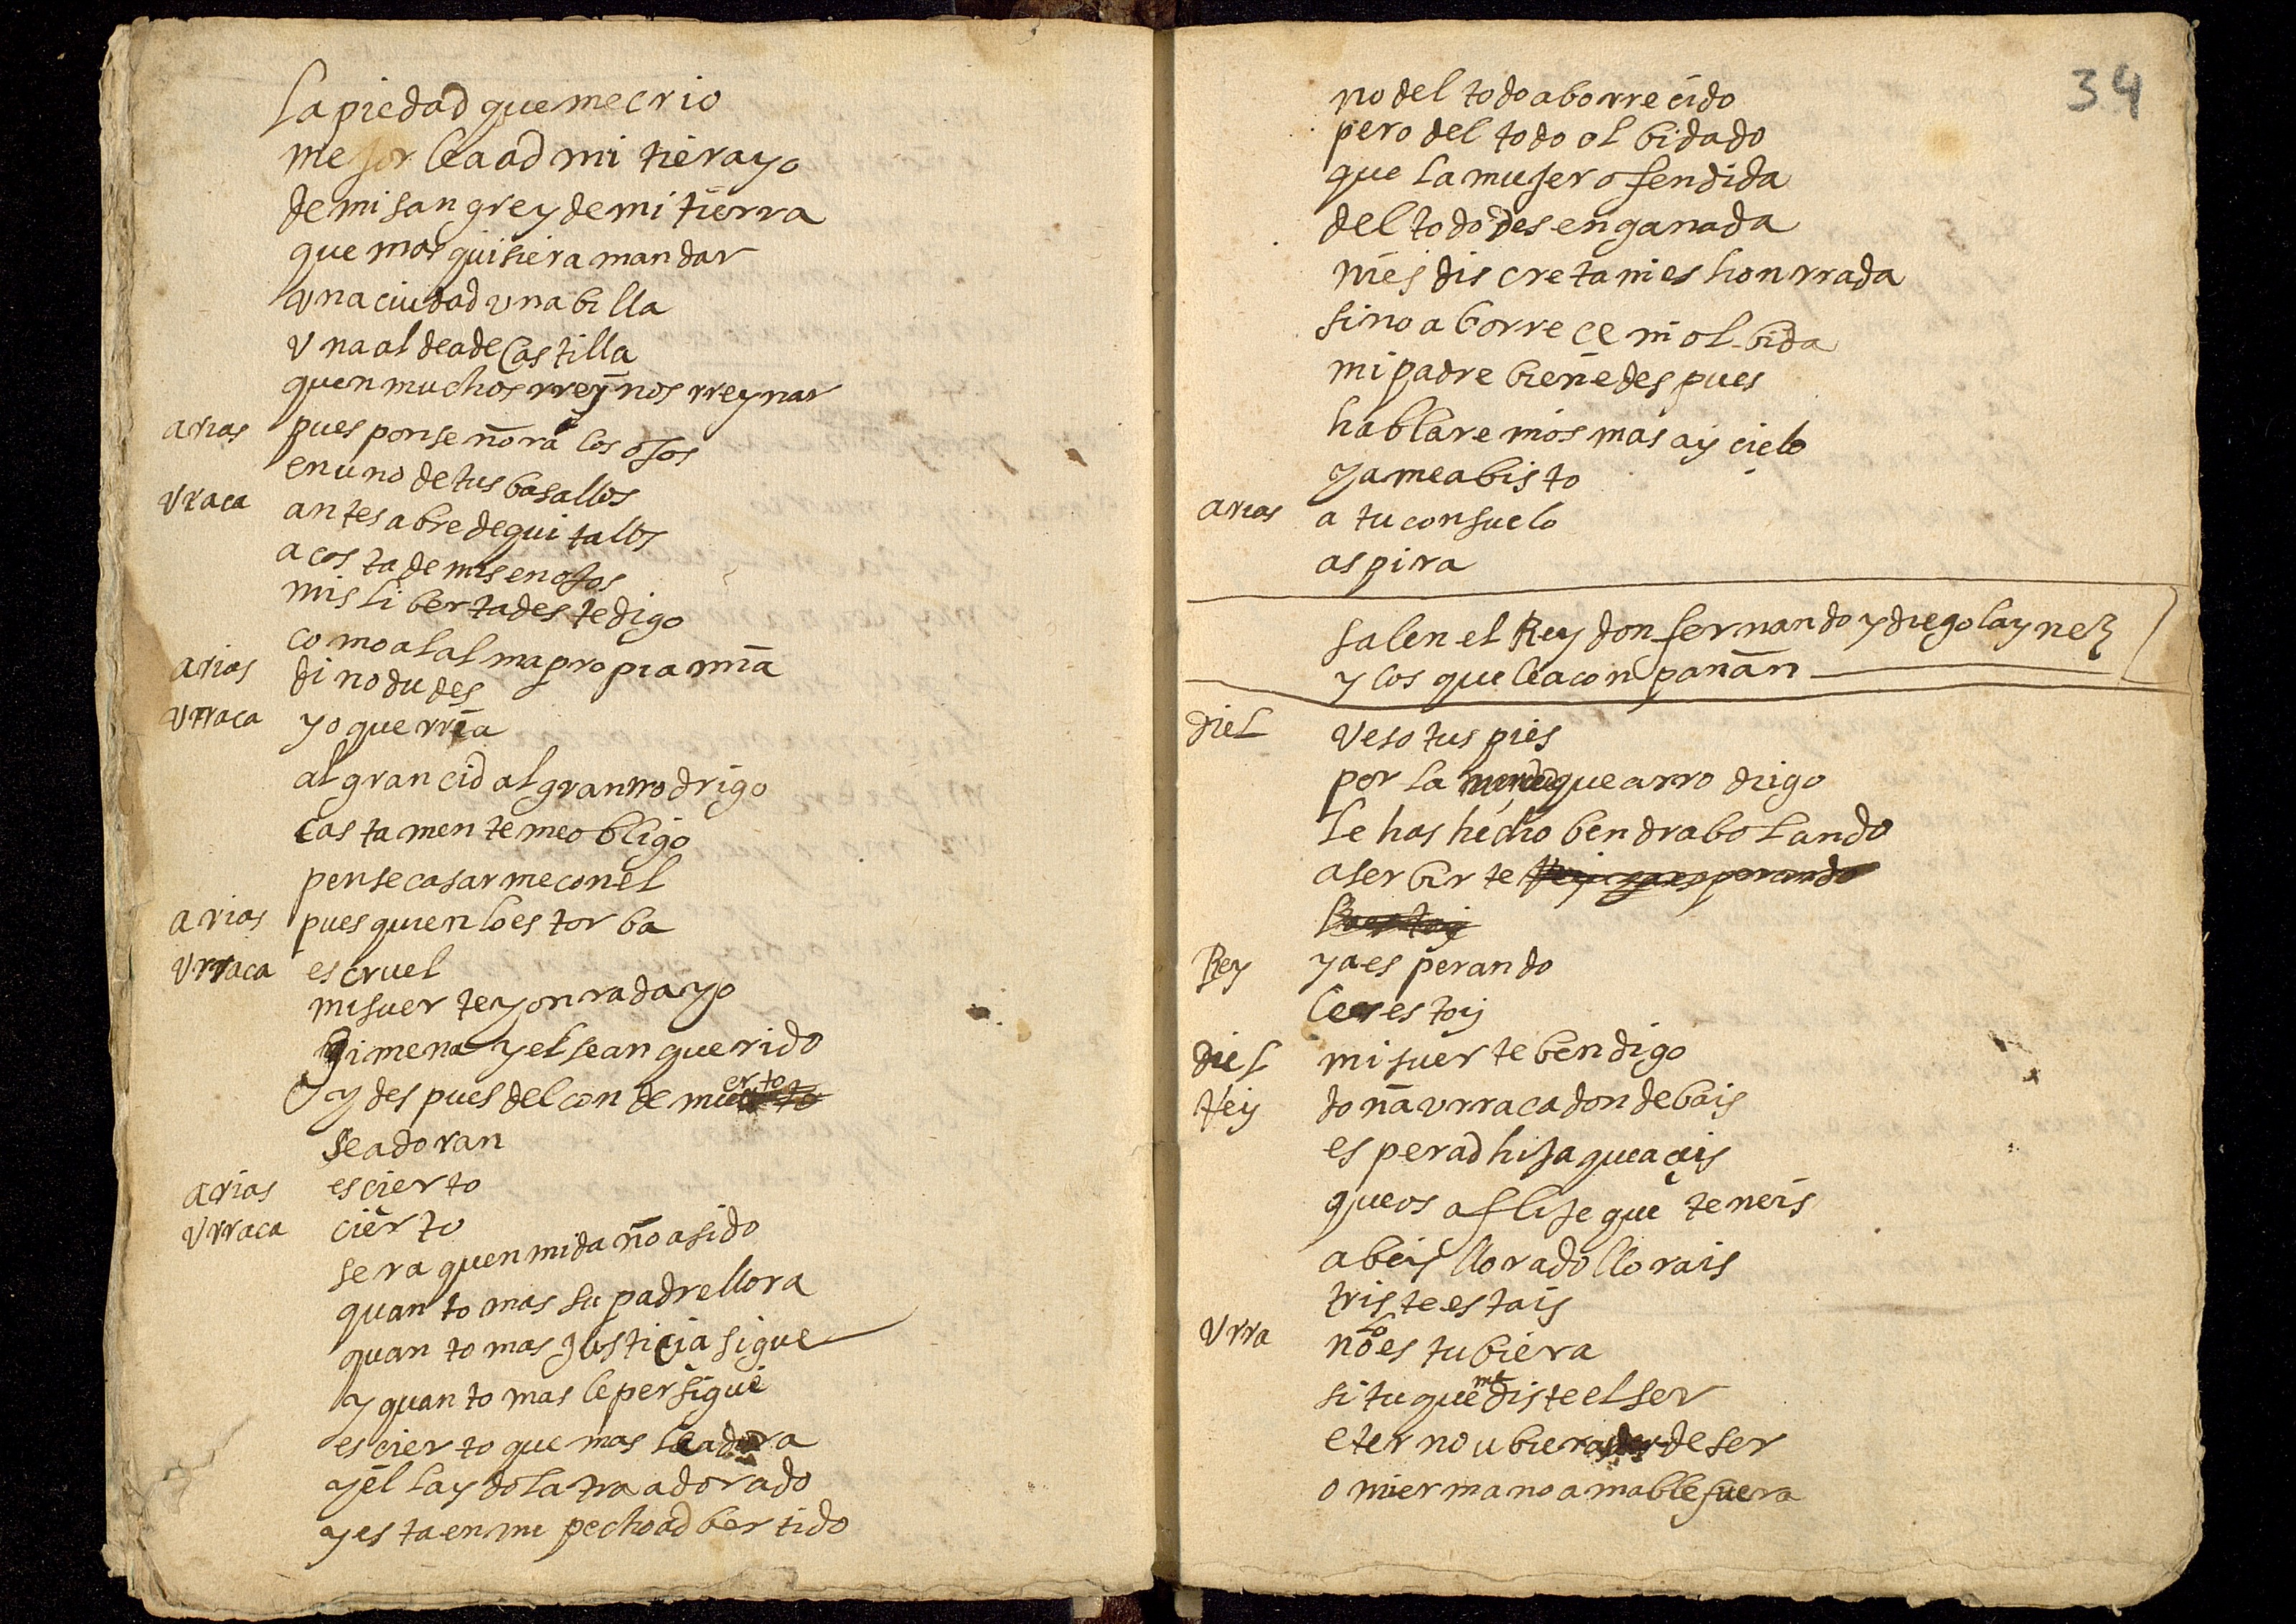 la piedad que me crio
mejor lea ad mi tiera yo
de mi sangre y de mi tierra
que mas quisiera mandar
una ciudad una billa
una aldea de Castilla
quen muchos rreynos rreynar
arias pues pon señora los ojos
en uno de tus basallos
vraca antes abre de quitallos
a costa de mis enojos
mis libertades te digo
como al alma propia mia
arias di no dudes
vrraca yo querria
al gran cid al gran rrodrigo
castamente me obligo
pense casarme con el
arias pues quien lo estorba
vrraca es cruel
mi suerte y onrada yo
Jimena y el sean querido
y despues del conde muerto
se adoran
arias es cierto
vrraca cierto
sera quen mi daño a sido
quanto mas su padre llora
quanto mas Justicia sigue
y quanto mas le persigue
es cierto que mas le adora
y el la ydolatra adorado
y esta en mi pecho adbertido
34
no del todo aborrecido
pero del todo olbidado
que la mujer ofendida
del todo desenganada
ni es discreta ni es honrrada
si no aborrece ni olbida
mi padre biene despues
hablaremos mas ay cielo
ya me a bisto
arias a tu consuelo
aspira
salen el Rey don fernando y diego laynez
y los que le aconpañan
dieL veso tus pies
por la merced que a rrodrigo
le has hecho bendra bolando
a serbirte Rey ya esperando
Rey ya esperando
lo estoy
dieL mi suerte bendigo
Rey doña vrraca donde bais
esperad hija que açeis
que os aflije que teneis
abeis llorado llorais
triste estais
vrra no lo estubiera
si tu que me diste el ser
eterno ubieras de ser
o mi ermano amable fuera